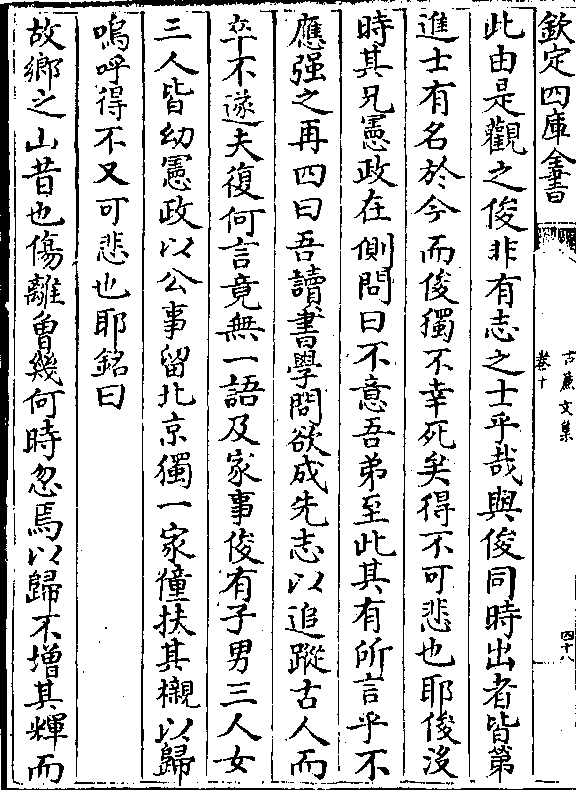 欽定四庫全書
古廉文集
卷十
四十八
此由是觀之俊非有志之士乎哉與俊同時出者皆第
進士有名於今而俊獨不幸死矣得不可悲也耶俊沒
時其兄憲政在側問曰不意吾弟至此其有所言乎不
應强之再四曰吾讀書學問欲成先志以追蹤古人而
卒不遂夫復何言竟無一語及家事俊有子男三人女
三人皆幼憲政以公事留北京獨一家僮扶其櫬以歸
嗚呼得不又可悲也耶銘曰
故鄉之山昔也傷離曾幾何時忽焉以歸不增其輝而